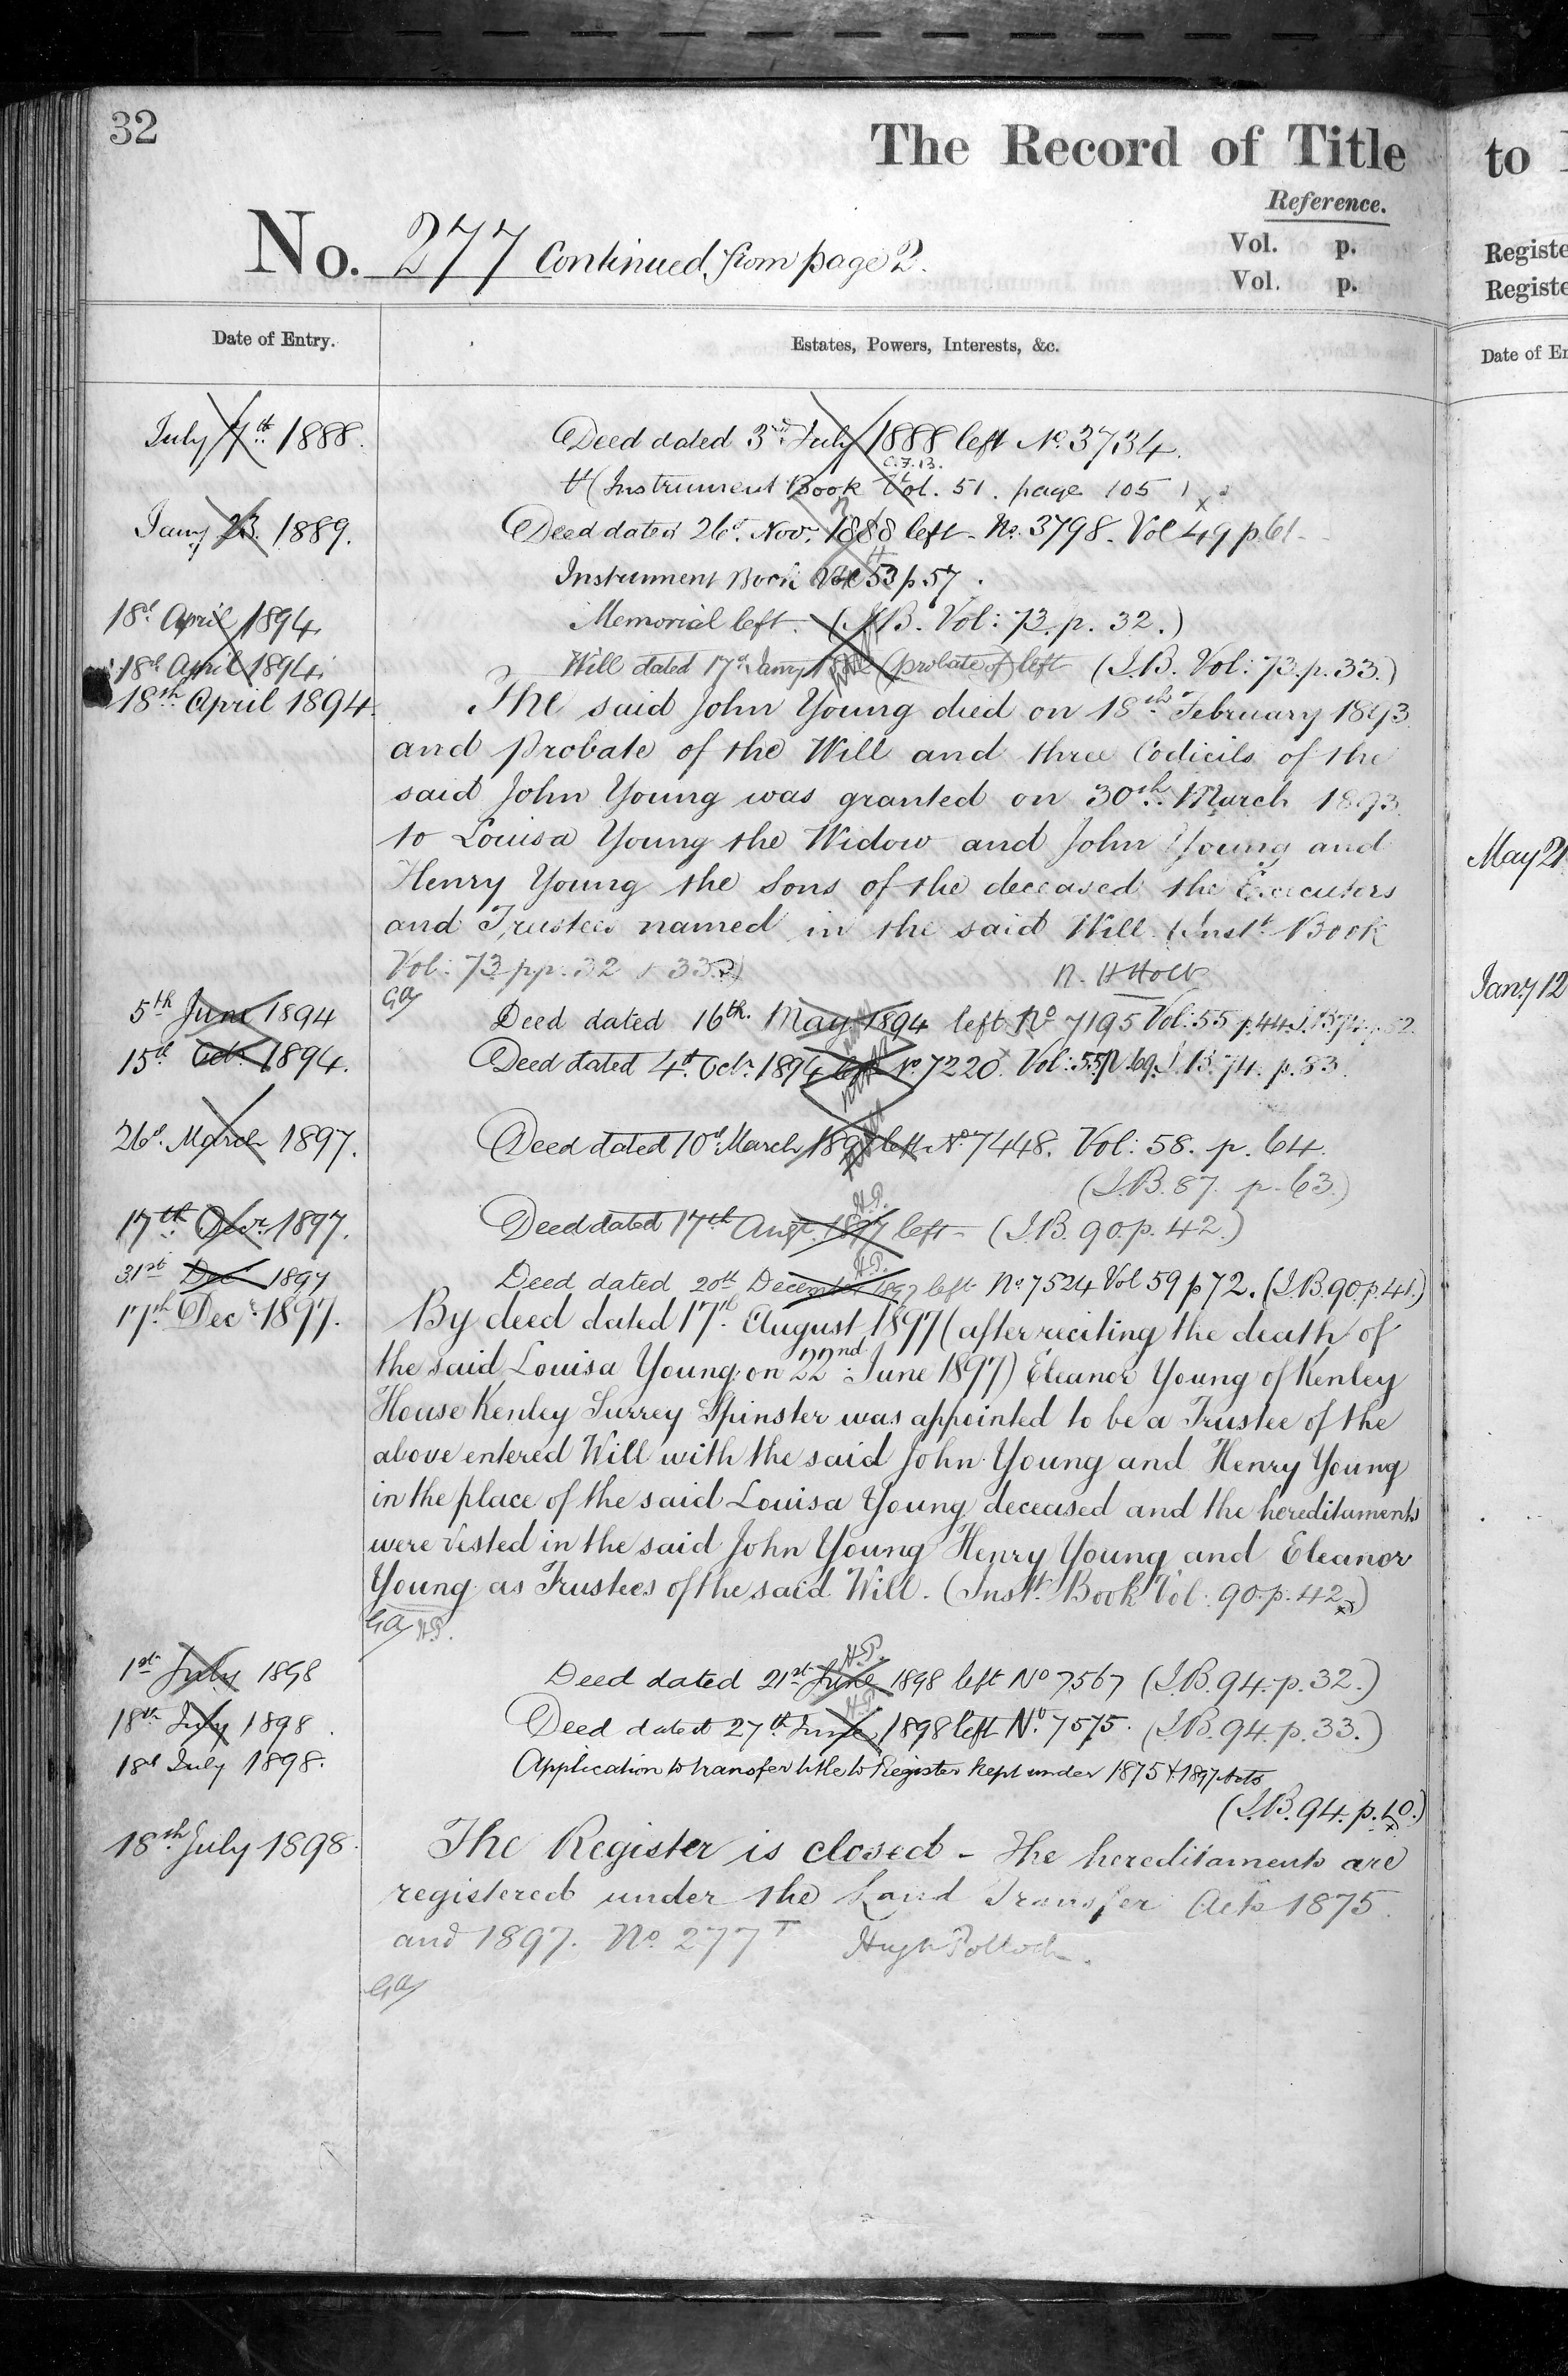 32
The Record of Title
Reference.
No. 277 Continued from page 2.
Vol. p.
Vol. p.
Date of Entry.
Estates, Powers, Interests, &c.
July 7th 1888. Deed dated 3rd July 1888 left No. 3734.
C.F.B.
(Instrument Book Vol. 51. page 105)
Jany 23. 1889. Deed dated 26th Novr. 1888 left No. 3798. Vol 49 p. 61
Instrument Book Vol 53 p. 57.
18th April 1894 Memorial left. (I.B. Vol: 73. p. 32.)
18th April 1894 Will dated 17th Jany (probate of) left (I.B. Vol: 73. p. 33.)
18th April 1894. The said John Young died on 18th February 1893
and Probate of the Will and three Codicils of the
said John Young was granted on 30th March 1893
to Louisa Young the Widow and John Young and
Henry Young the Sons of the deceased the Executors
and Trustees named in the said Will. (Inst. Book
Vol: 73 pp. 32 & 33.)
GA
5th June 1894 Deed dated 16th. May 1894 left No 7195 Vol: 55 p. 44 I.B. 74. p. 32.
15th Octr. 1894. Deed dated 4th Octr. 1894 left No. 7220. Vol: 55 p. 69. I.B. 74. p. 33.
26th March 1897. Deed dated 10th March 1897 left No 7448. Vol: 58. p. 64.
(I.B. 87. p. 63.)
H.P.
17th Decr. 1897. Deed dated 17th Augt. 1897 left - (I.B. 90. p. 42.)
H.P.
31st Decr 1897 Deed dated 20th December 1897 left No 7524 Vol 59 p 72. (I.B. 90. p. 41.)
17th Decr. 1897. By deed dated 17th August 1897 (after reciting the death of
the said Louisa Young on 22nd June 1897) Eleanor Young of Kenley
House Kenley Surrey Spinster was appointed to be a Trustee of the
above entered Will with the said John Young and Henry Young
in the place of the said Louisa Young deceased and the hereditaments
were vested in the said John Young Henry Young and Eleanor
Young as Trustees of the said Will. (Inst. Book Vol: 90. p. 42)
GA H.P.
H.P.
1st July 1898 Deed dated 21st June 1898 left No 7567 (I.B. 94. p. 32.)
H.P.
18th July 1898. Deed dated 27th June 1898 left No. 7575. (I.B. 94. p. 33.)
18th July 1898. Application to transfer title to Register kept under 1875 & 1897 Acts
(I.B. 94. p. 10.)
18th July 1898. The Register is closed - The hereditaments are
registered under the Land Transfer Acts 1875
and 1897. No. 277T Hugh Pollock.
GA
to
Registe
Registe
Date of En
May 21
Jany 12